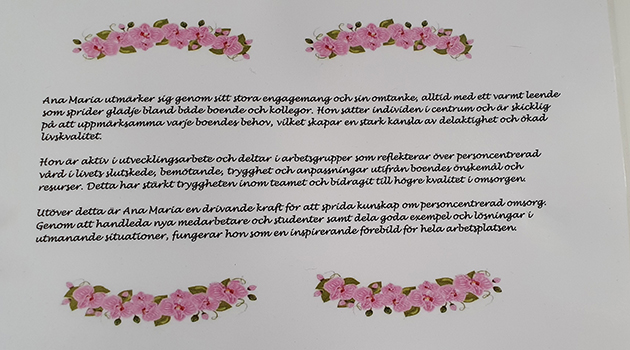 Ana Maria utmärker sig genom sitt stora engagemang och sin omtanke, alltid med ett varmt leende
som sprider glädje bland både boende och kollegor. Hon sätter individen i centrum och är skicklig
på att uppmärksamma varje boendes behov, vilket skapar en stark känsla av delaktighet och ökad
livskvalitet.
Hon är aktiv i utvecklingsarbete och deltar i arbetsgrupper som reflekterar över personcentrerad
vård i livets slutskede, bemötande, trygghet och anpassningar utifrån boendes önskemål och
resurser. Detta har stärkt tryggheten inom teamet och bidragit till högre kvalitet i omsorgen.
Utöver detta är Ana Maria en drivande kraft för att sprida kunskap om personcentrerad omsorg.
Genom att handleda nya medarbetare och studenter samt dela goda exempel och lösningar i
utmanande situationer, fungerar hon som en inspirerande förebild för hela arbetsplatsen.